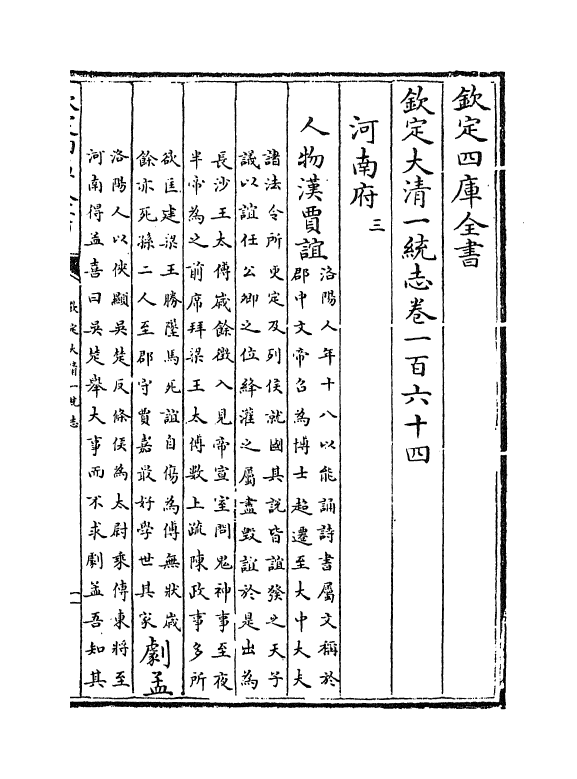 欽定四庫全書
欽定大清一統志卷一百六十四
河南府三
人物漢賈誼
洛陽人年十八以能誦詩書屬文稱於
郡中文帝召為博士超遷至大中大夫
諸法令所更定及列侯就國其說皆誼發之天子
議以誼任公卿之位絳灌之屬盡毀誼於是出為
長沙王太傅歲餘徵入見帝宣室問鬼神事至夜
半帝為之前席拜梁王太傅數上疏陳政事多所
欲匡建梁王勝墜馬死誼自傷為傅無狀歲
餘亦死孫二人至郡守賈嘉最好學世其家
劇孟
洛陽人以俠顯吳楚反條侯為太尉乘傳東將至
河南得孟喜曰吳楚舉大事而不求劇孟吾知其
欽定四庫全書
欽定大清一統志
一